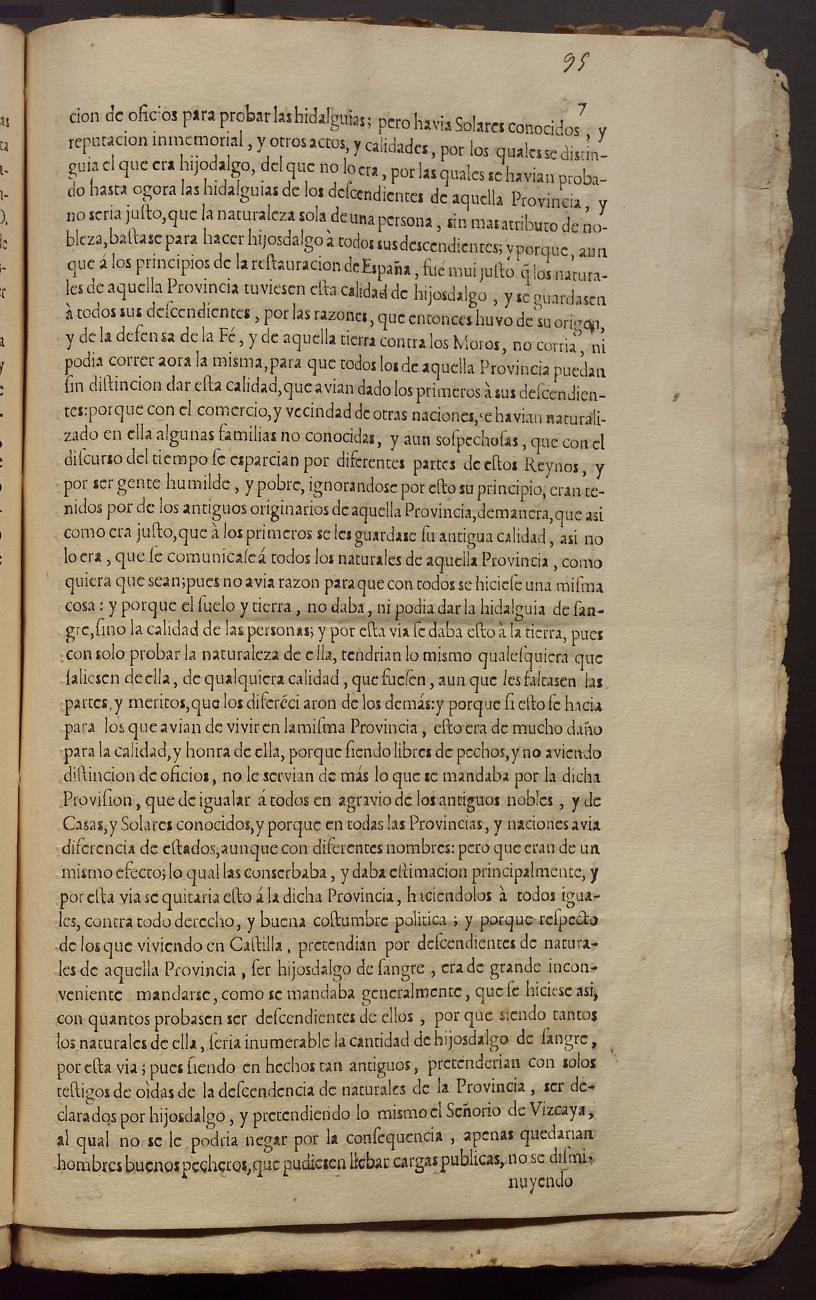 95
7
cion de oficios para probar las hidalguias; pero havia Solares conocidos, y
reputacion inmemorial, y otros actos, y calidades, por los quales se distin-
guia el que era hijodalgo, del que no lo era, por las quales se havian proba-
do hasta ogora las hidalguias de los deſcendientes de aquella Provincia, y
no seria juſto, que la naturaleza sola de una persona, sin mas attributo de no-
bleza, baſtase para hacer hijosdalgo à todos sus descendientes; y porque, aun
que á los principios de la reſtauracion de España, fué mui juſto q̃ los natura-
les de aquella Provincia tuviesen eſta calidad de hijosdalgo, y se guardasen
à todos sus deſcendientes, por las razones, que entonces huvo de su origen,
y de la defensa de la Fé, y de aquella tierra contra los Moros, no corria, ni
podia correr aora la misma, para que todos los de aquella Provincia puedan
ſin diſtincion dar eſta calidad, que avian dado los primeros à sus deſcendien-
tes: porque con el comercio, y vecindad de otras naciones, se havian naturali-
zado en ella algunas familias no conocidas, y aun soſpechoſas, que con el
diſcurso del tiempo ſe esparcian por diferentes partes de eſtos Reynos, y
por ser gente humilde, y pobre, ignorandose por eſto su principio, eran te-
nidos por de los antiguos originarios de aquella Provincia, demanera, que asi
como era juſto, que à los primeros se les guardase ſu antigua calidad, asi no
lo era, que ſe comunicaſe á todos los naturales de aquella Provincia, como
quiera que sean; pues no avia razon para que con todos se hicieſe una miſma
cosa: y porque el ſuelo y tierra, no daba, ni podia dar la hidalguia de ſan-
gre, ſino la calidad de las personas; y por eſta via ſe daba eſto à la tierra, pues
con solo probar la naturaleza de ella, tendrian lo mismo qualeſquiera que
ſaliesen de ella, de qualquiera calidad, que fueſen, aun que les faltasen las
partes, y meritos, que los diferéci aron de los demás: y porque ſi eſto ſe hacia
para los que avian de vivir en la miſma Provincia, eſto era de mucho daño
para la calidad, y honra de ella, porque ſiendo libres de pechos, y no aviendo
diſtincion de oficios, no le servian de más lo que se mandaba por la dicha
Proviſion, que de igualar á todos en agravio de los antiguos nobles, y de
Casas, y Solares conocidos, y porque en todas las Provincias, y naciones avia
diferencia de eſtados, aunque con diferentes nombres: pero que eran de un
mismo efecto; lo qual las conserbaba, y daba eſtimacion principalmente, y
por eſta via se quitaria eſto á la dicha Provincia, haciendolos à todos igua-
les, contra todo derecho, y buena coſtumbre politica; y porque reſpecto
de los que viviendo en Caſtilla, pretendian por deſcendientes de natura-
les de aquella Provincia, ſer hijosdalgo de ſangre, era de grande incon-
veniente mandarse, como se mandaba generalmente, que ſe hiciese asi,
con quantos probasen ser deſcendientes de ellos, por que siendo tantos
los naturales de ella, ſeria inumerable la cantidad de hijosdalgo de ſangre,
por eſta via; pues ſiendo en hechos tan antiguos, pretenderian con solos
teſtigos de oìdas de la deſcendencia de naturales de la Provincia, ser de-
clarados por hijosdalgo, y pretendiendo lo mismo el Señorio de Vizcaya,
al qual no se le podria negar por la conſequencia, apenas quedarian
hombres buenos pecheros, que pudiesen llebar cargas publicas, no se diſmi-
nuyendo